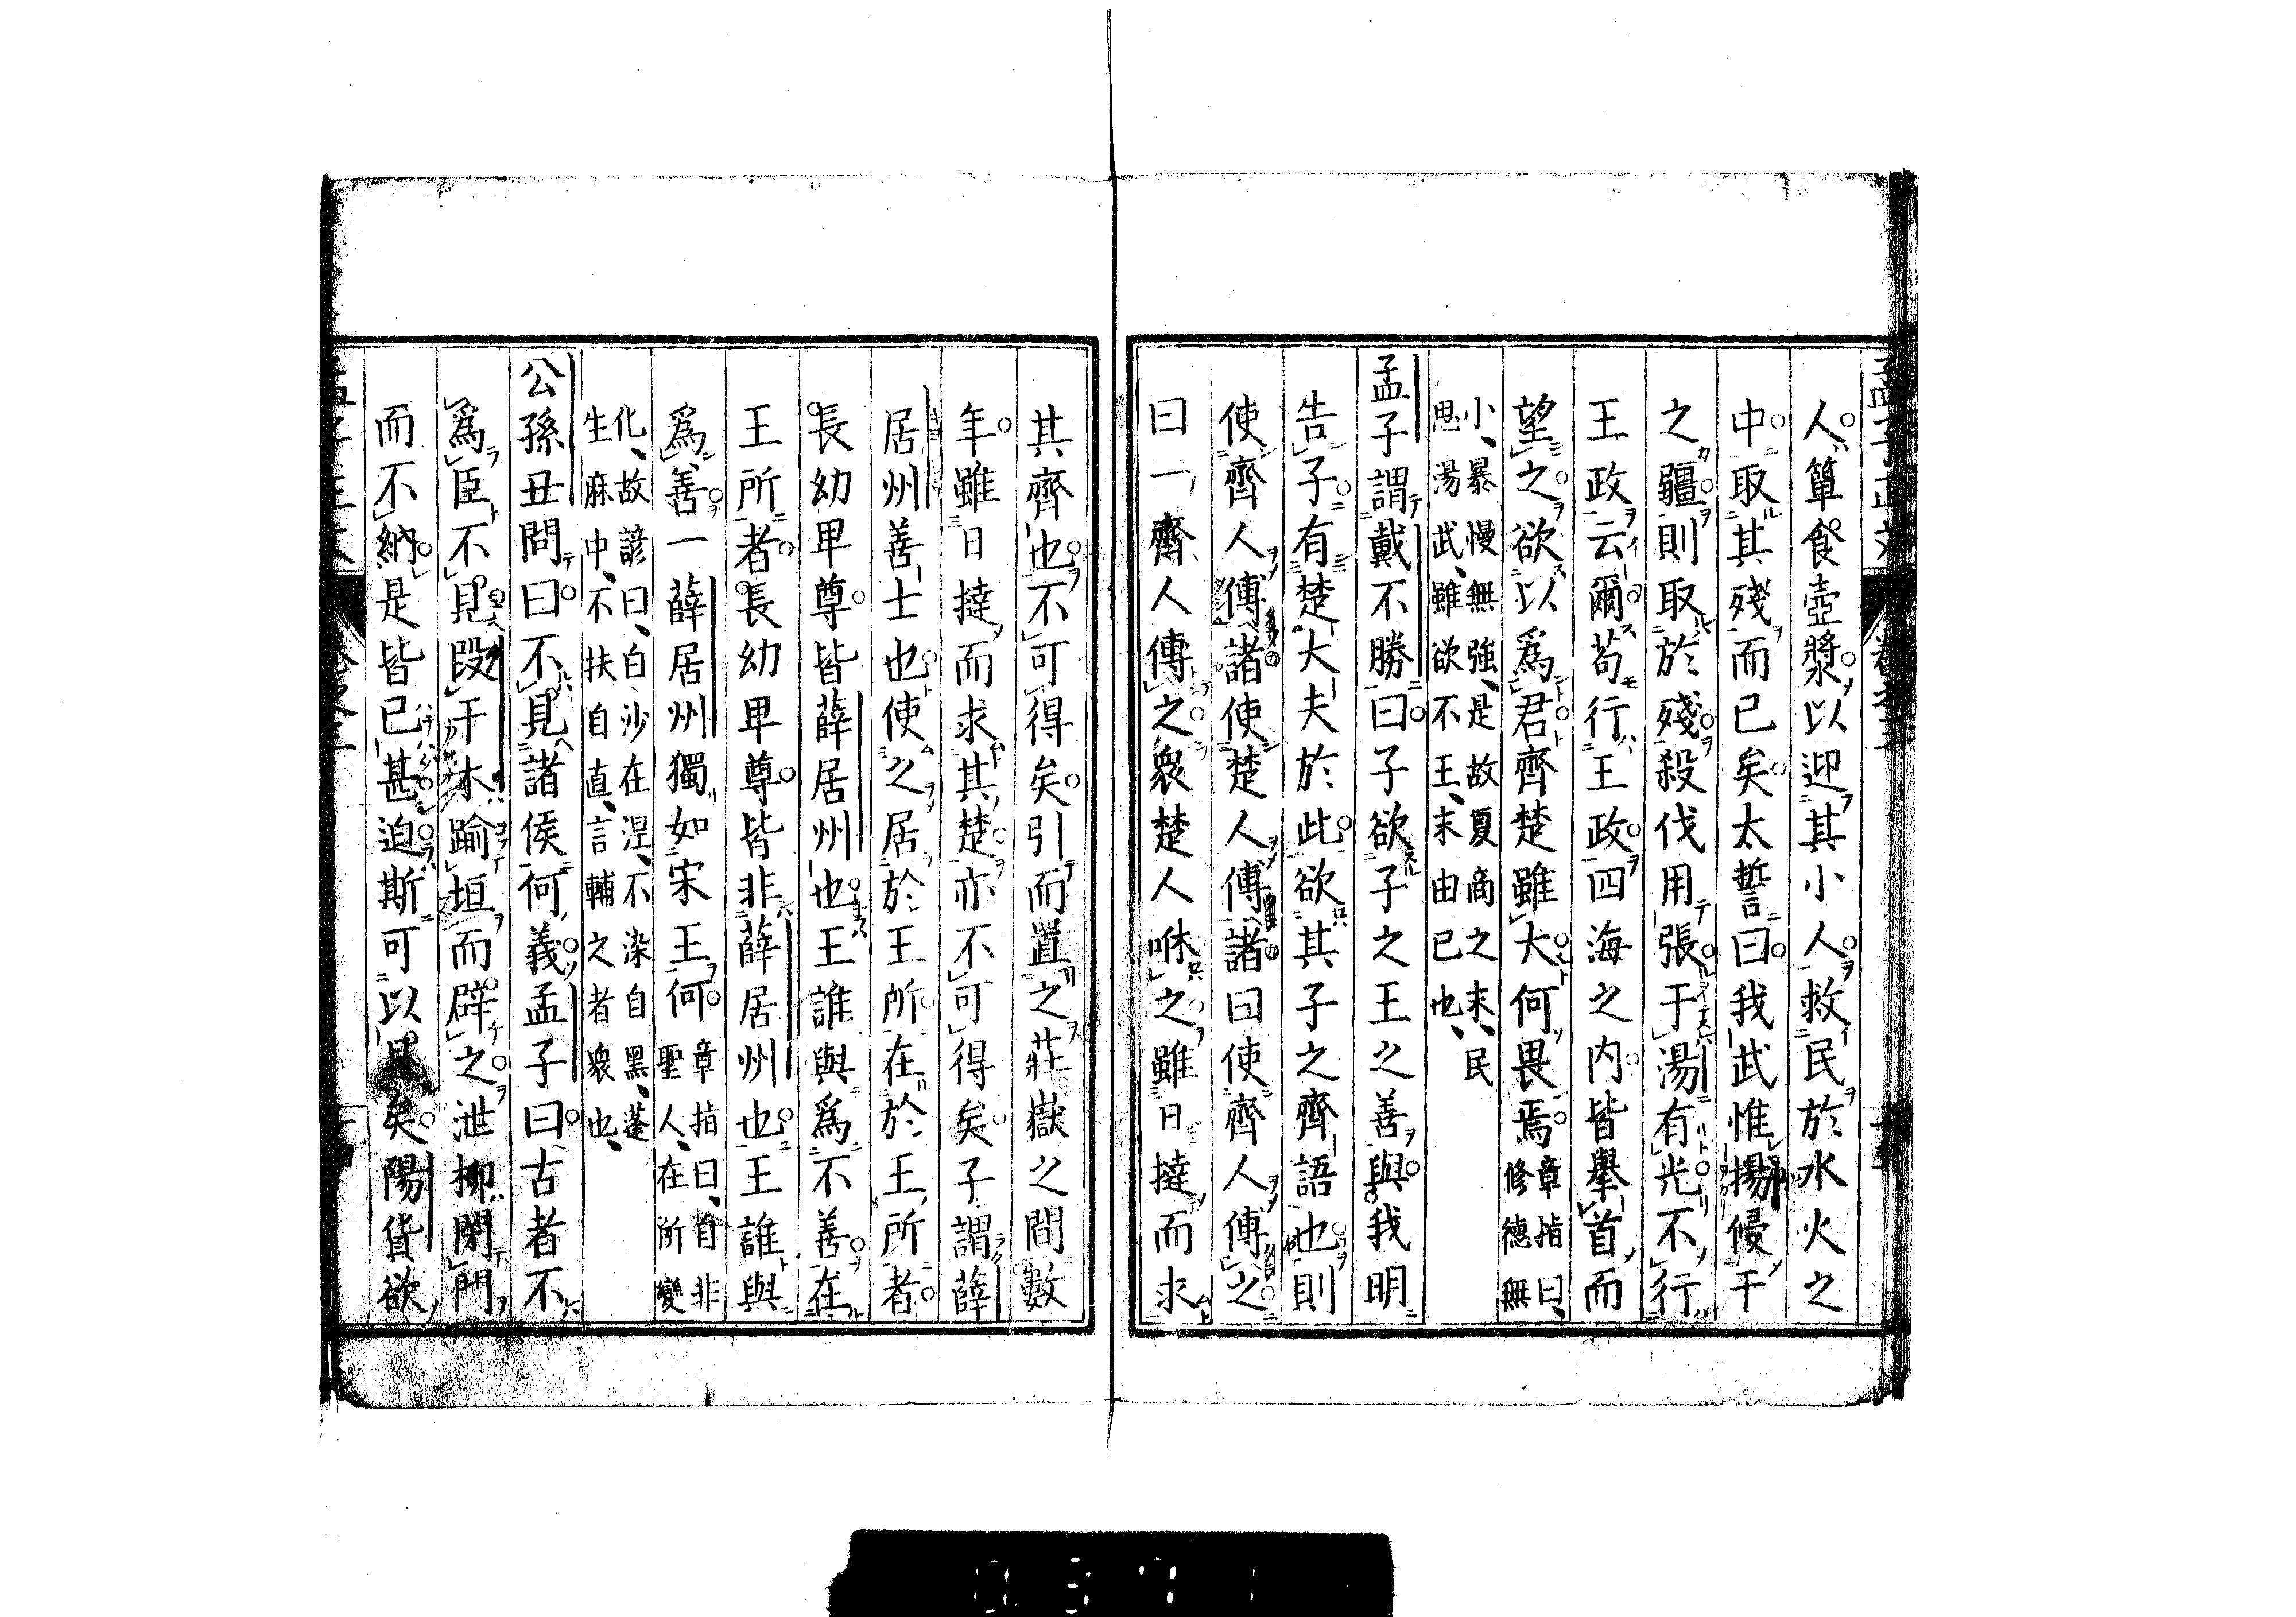 人簞食壺漿以迎其小人救民於水火之
中取其殘而已矣太誓曰我武惟揚侵于
之疆則取於殘殺伐用張于湯有光不行
王政云爾苟行王政四海之内皆擧首而
望之欲以爲君齊楚雖大何畏焉章指曰、修德無
小、暴慢無強、是故夏商之末、民思湯武、雖欲不王、末由已也、
孟子謂戴不勝曰子欲子之王之善與我明
告子有楚大夫於此欲其子之齊語也則
使齊人傅諸使楚人傅諸曰使齊人傅之
曰一齊人傅之衆楚人咻之雖日撻而求
其齊也不可得矣引而置之莊嶽之間數
年雖日撻而求其楚亦不可得矣子謂薛
居州善士也使之居於王所在於王所者
長幼卑尊皆薛居州也王誰與爲不善在
王所者長幼卑尊皆非薛居州也王誰與
爲善一薛居州獨如宋王何章指曰、自非聖人、在所變
化、故諺曰、白沙在涅、不染自黑、蓬生麻中、不扶自直、言輔之者衆也、
公孫丑問曰不見諸侯何義孟子曰古者不
爲臣不見段干木踰垣而辟之泄柳閑門
而不納是皆已甚迫斯可以見矣陽貨欲